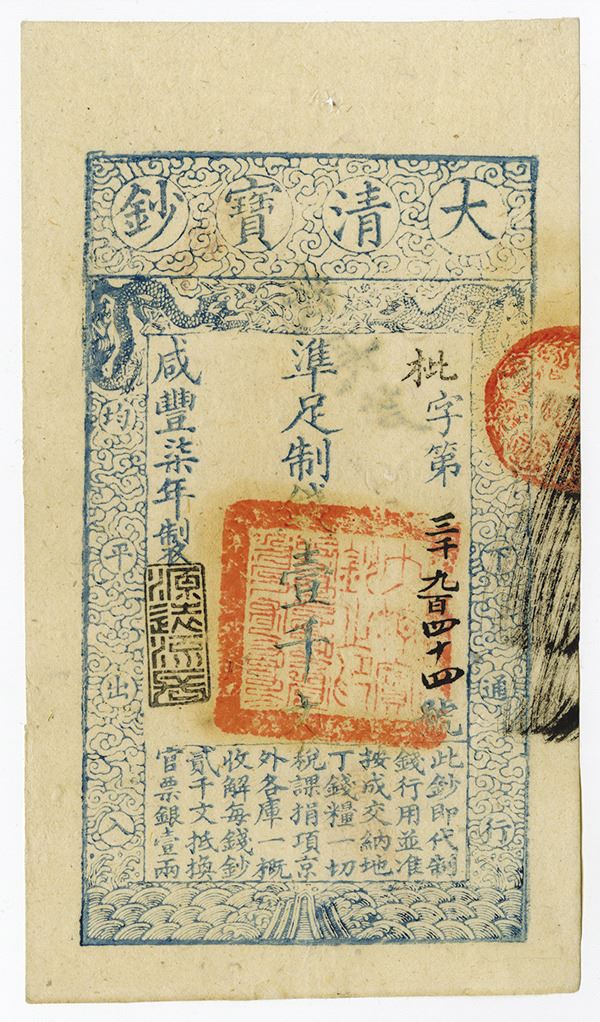 大清寶鈔
下通行
均平出入
枇字第三千九百四十四號
準足制錢壹千文
咸豐柒年製
此鈔即代制
錢行用並准
按成交納地
丁錢糧一切
稅課捐項京
外各庫一概
收解每錢鈔
貳千文抵換
官票銀壹兩